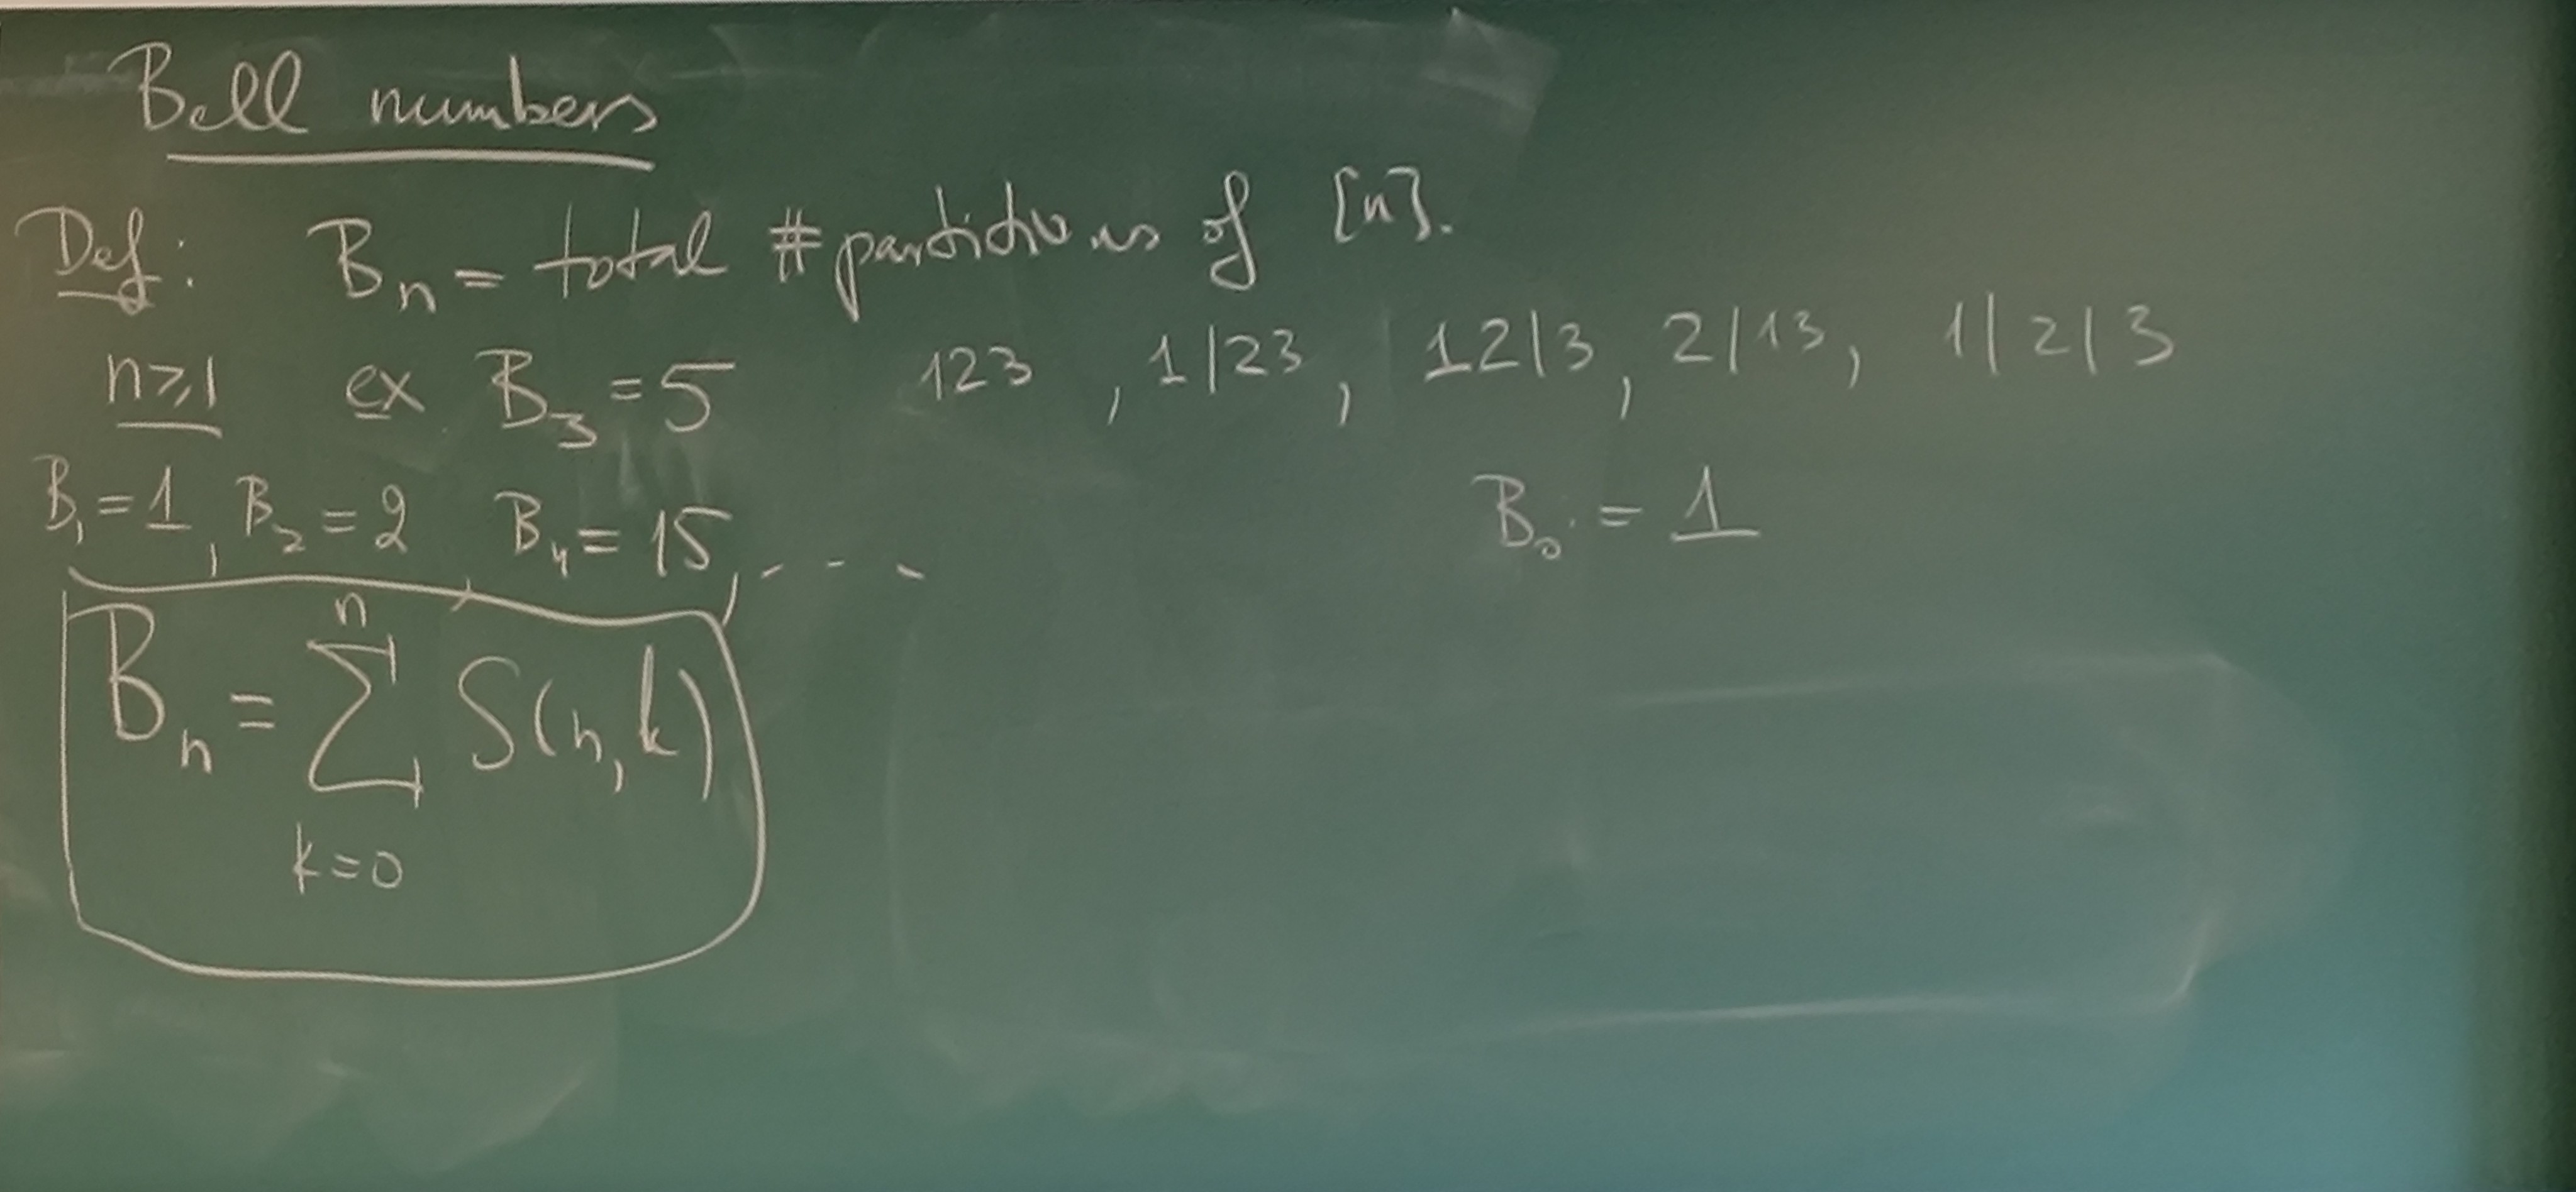 Bell numbers
Def: Bₙ = total # partitions of [n].
n≥1 ex B₃ = 5 123, 1|23, 12|3, 2|13, 1|2|3
B₁ = 1, B₂ = 2, B₄ = 15, - - - B₀ = 1
n
Bₙ = ∑ S(n,k)
k=0